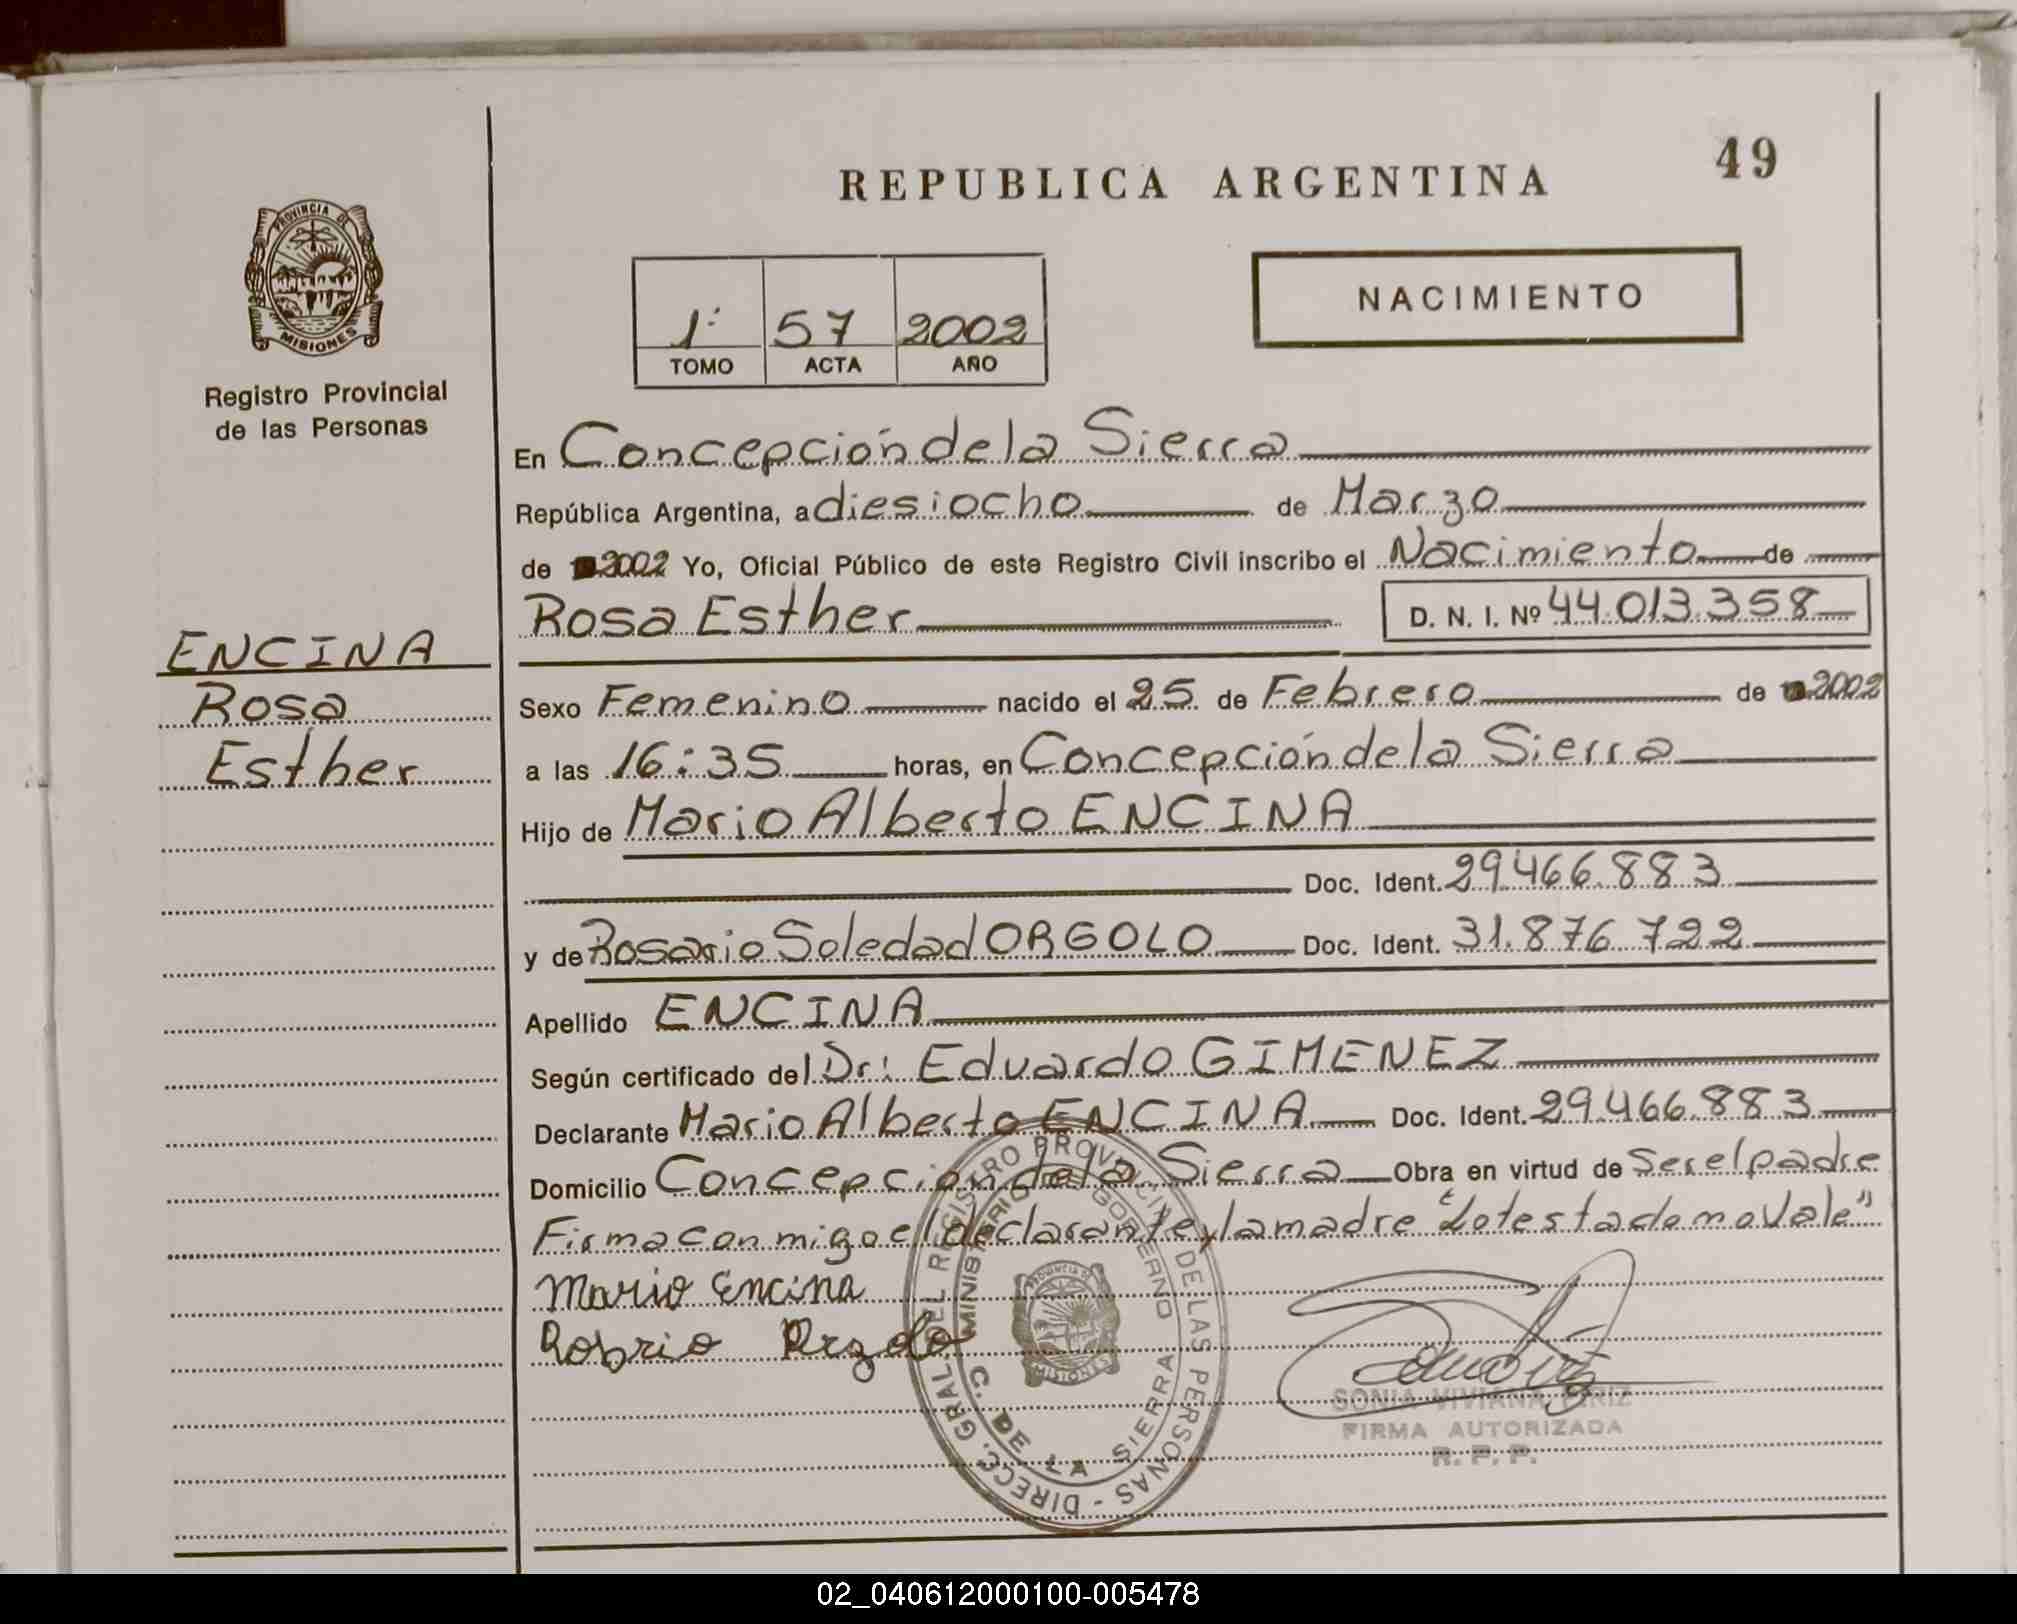 49
REPUBLICA ARGENTINA
PROVINCIA DE
MISIONES
Registro Provincial
de las Personas
NACIMIENTO
1º 57 2002
TOMO ACTA AÑO
En Concepción de la Sierra
República Argentina, a diesiocho de Marzo
de 2002 Yo, Oficial Público de este Registro Civil inscribo el Nacimiento de
Rosa Esther D. N. I. Nº 44.013.358
ENCINA
Rosa
Esther
Sexo Femenino nacido el 25 de Febrero de 2002
a las 16:35 horas, en Concepción de la Sierra
Hijo de Mario Alberto ENCINA
Doc. Ident. 29.466.883
y de Rosario Soledad ORGOLO Doc. Ident. 31.876.722
Apellido ENCINA
Según certificado del Dr: Eduardo GIMENEZ
Declarante Mario Alberto ENCINA Doc. Ident. 29.466.883
Domicilio Concepción de la Sierra Obra en virtud de Ser el padre
Firma conmigo el declarante y la madre "Lo testado no Vale"
Mario Encina
DIRECC. GRAL. DEL REGISTRO PROVINCIAL DE LAS PERSONAS -
MINISTERIO DE GOBIERNO
PROVINCIA DE
MISIONES
C. DE LA SIERRA
SONIA VIVIANA
FIRMA AUTORIZADA
R. P. P.
02_040612000100-005478